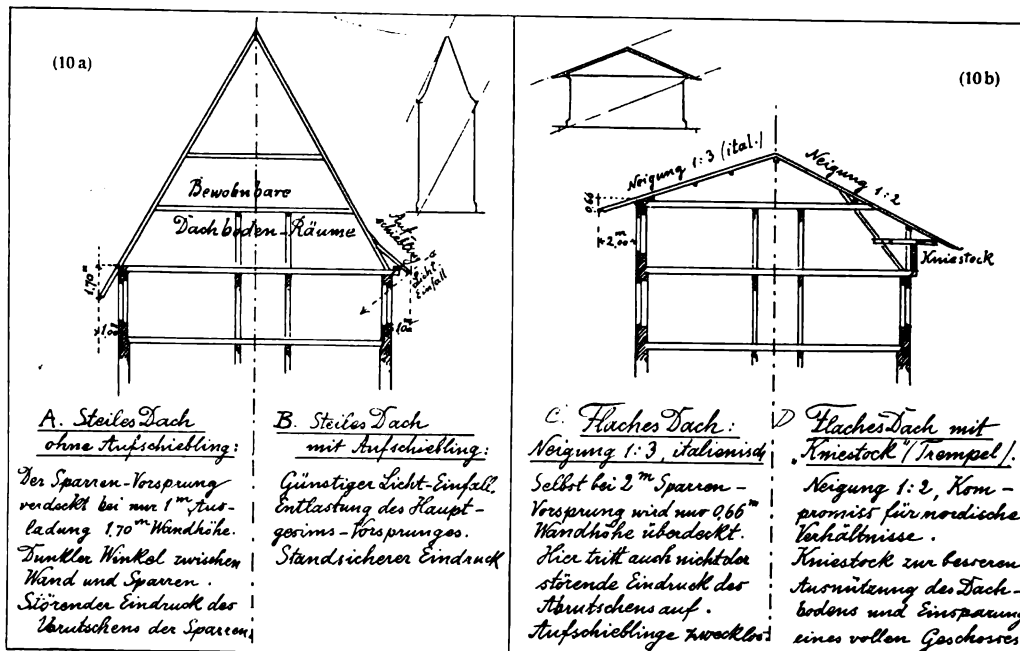 (10a)
Bewohnbare
Dachboden-Räume
Auf
schiebling
Licht-
Einfall
1.70m
1.00m
1.00m
A. Steiles Dach
ohne Aufschiebling:
Der Sparren-Vorsprung
verdeckt bei nur 1m Aus-
ladung 1.70m Wandhöhe.
Dunkler Winkel zwischen
Wand und Sparren.
Störender Eindruck des
Abrutschens der Sparren.
B. Steiles Dach
mit Aufschiebling:
Günstiger Licht-Einfall,
Entlastung des Haupt-
gesims-Vorsprunges.
Standsicherer Eindruck
(10b)
Neigung 1:3 (ital.)
Neigung 1:2
0.66
2.00m
Kniestock
C. Flaches Dach:
Neigung 1:3, italienisch
Selbst bei 2m Sparren-
Vorsprung wird nur 0,66m
Wandhöhe überdeckt.
Hier tritt auch nicht der
störende Eindruck des
Abrutschens auf.
Aufschieblinge zwecklos.
D Flaches Dach mit
„Kniestock"/Trempel/.
Neigung 1:2, Kom-
promiss für nordische
Verhältnisse.
Kniestock zur besseren
Ausnützung des Dach-
bodens und Einsparung
eines vollen Geschosses